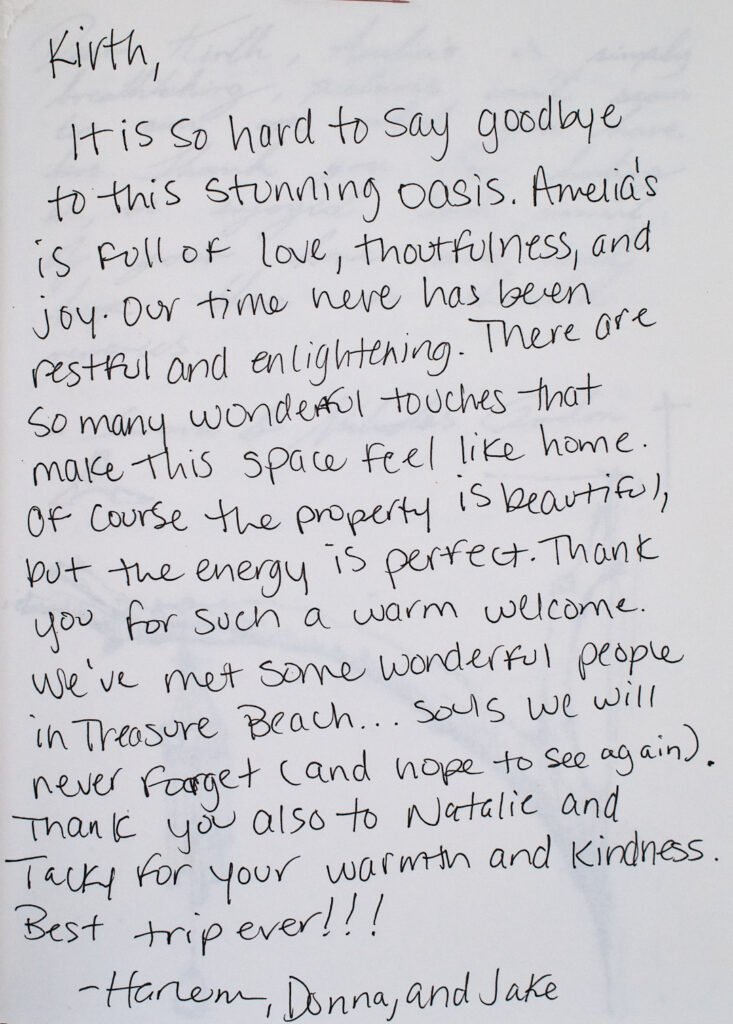 Kirth,
It is so hard to say goodbye
to this stunning oasis. Amelia's
is full of love, thoutfulness, and
joy. Our time here has been
restful and enlightening. There are
so many wonderful touches that
make this space feel like home.
Of course the property is beautiful,
but the energy is perfect. Thank
you for such a warm welcome.
We've met some wonderful people
in Treasure Beach... souls we will
never forget (and hope to see again).
Thank you also to Natalie and
Tacky for your warmth and kindness.
Best trip ever!!!
-Harlem, Donna, and Jake